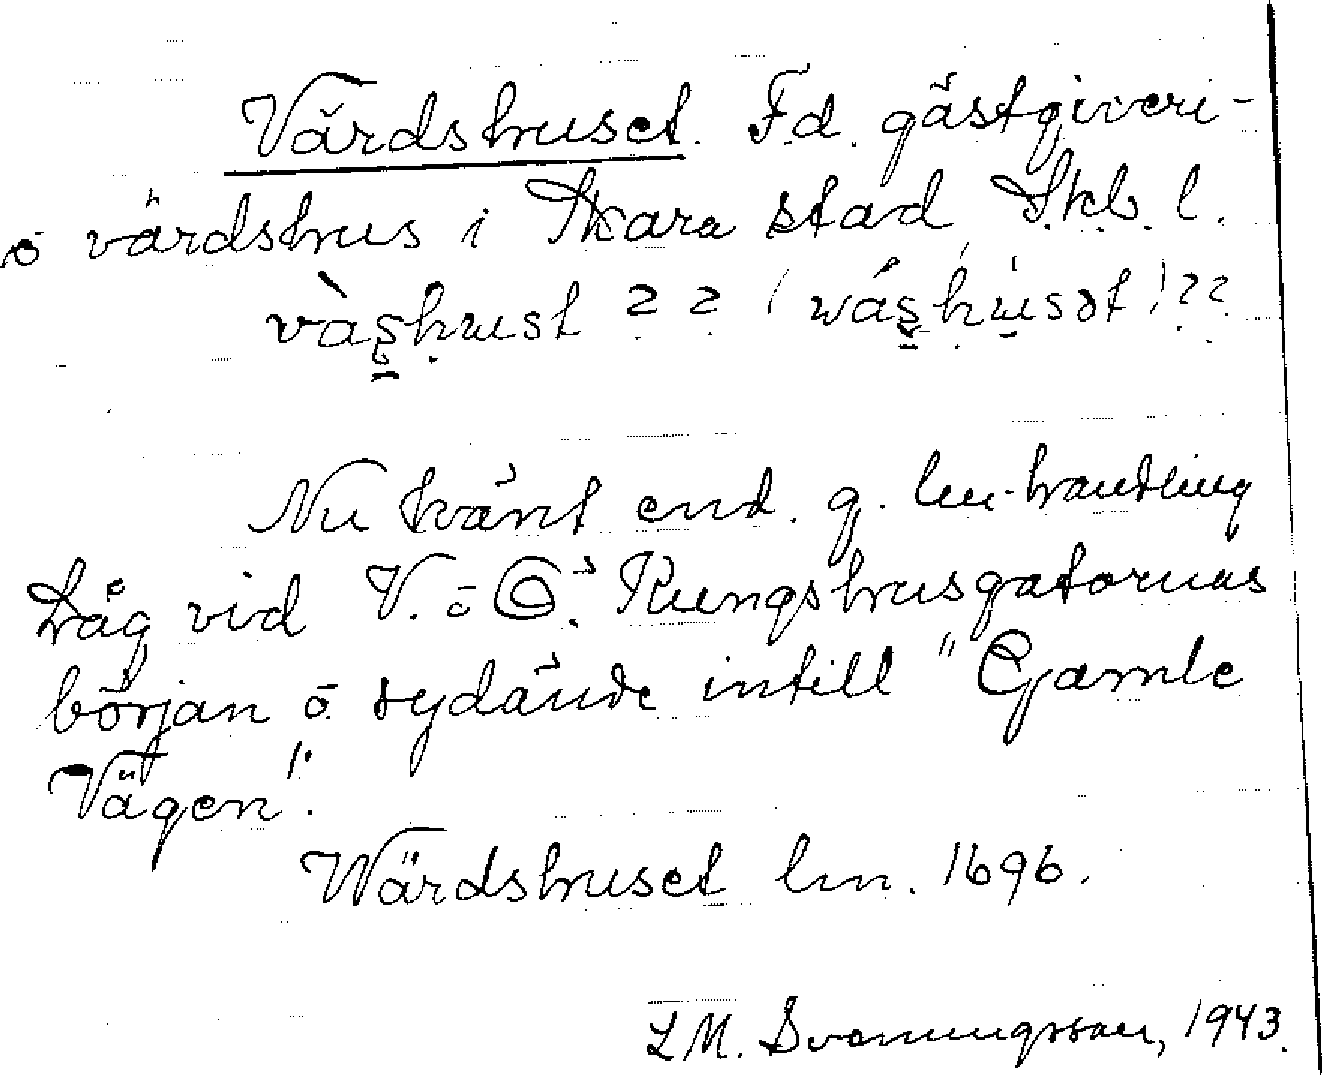 Värdshuset. Fd. gästgiveri-
o värdshus i Skara stad, Skb. l.
vàs̱ḥust ? ? (wás̱ḥu̇sət)??
Nu känt end. g. lm-handling
Låg vid V. o Ö. Kungshusgatornas
början o sydände intill "Gamle
Vägen".
Wärdshuset lm. 1696.
L M. Svenungsson, 1943.